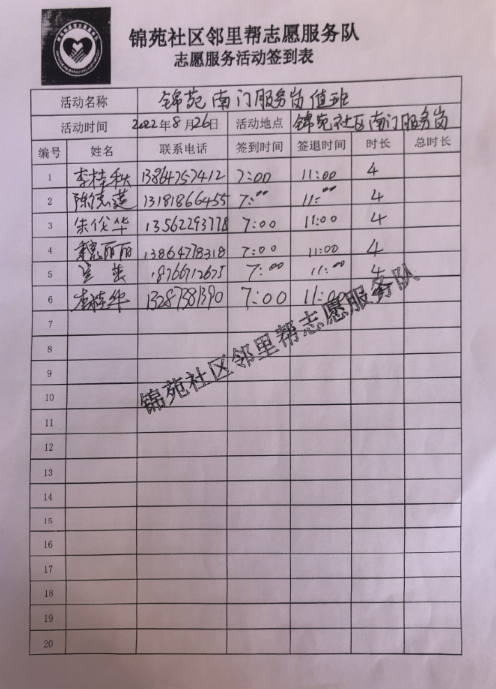 锦苑社区邻里帮志愿服务队
志愿服务活动签到表
活动名称 锦苑南门服务岗值班
活动时间 2022年8月26日 活动地点 锦苑社区南门服务岗
编号 姓名 联系电话 签到时间 签退时间 时长 总时长
1 李桂秋 13864757412 7:00 11:00 4
2 陈德莲 13181866455 7:00 11:00 4
3 朱俊华 13562293778 7:00 11:00 4
4 丽丽 13864778318 7:00 11:00 4
5 18766712675 7:00 11:00 4
6 李桂华 7:00 11:00 4
锦苑社区邻里帮志愿服务队
7
8
9
10
11
12
13
14
15
16
17
18
19
20